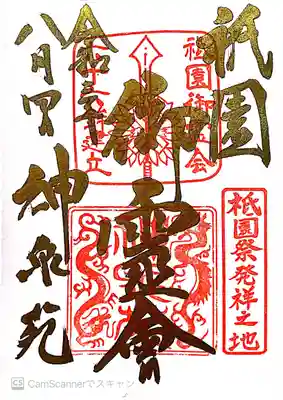 祇園
御靈會
令和三年
八月
神泉苑
祇園御霊会
建立
祇園祭発祥之地
CS CamScannerでスキャン